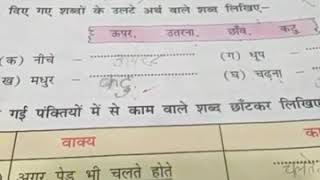 दिए गए शब्दों के उलटे अर्थ वाले शब्द लिखिए-
ऊपर, उतरना, छाँव, कटु
(क) नीचे - ऊपर (ग) धूप -
(ख) मधुर - कटु (घ) चढ़ना -
गई पंक्तियों में से काम वाले शब्द छाँटकर लिखिए
वाक्य
अगर पेड़ भी चलते होते